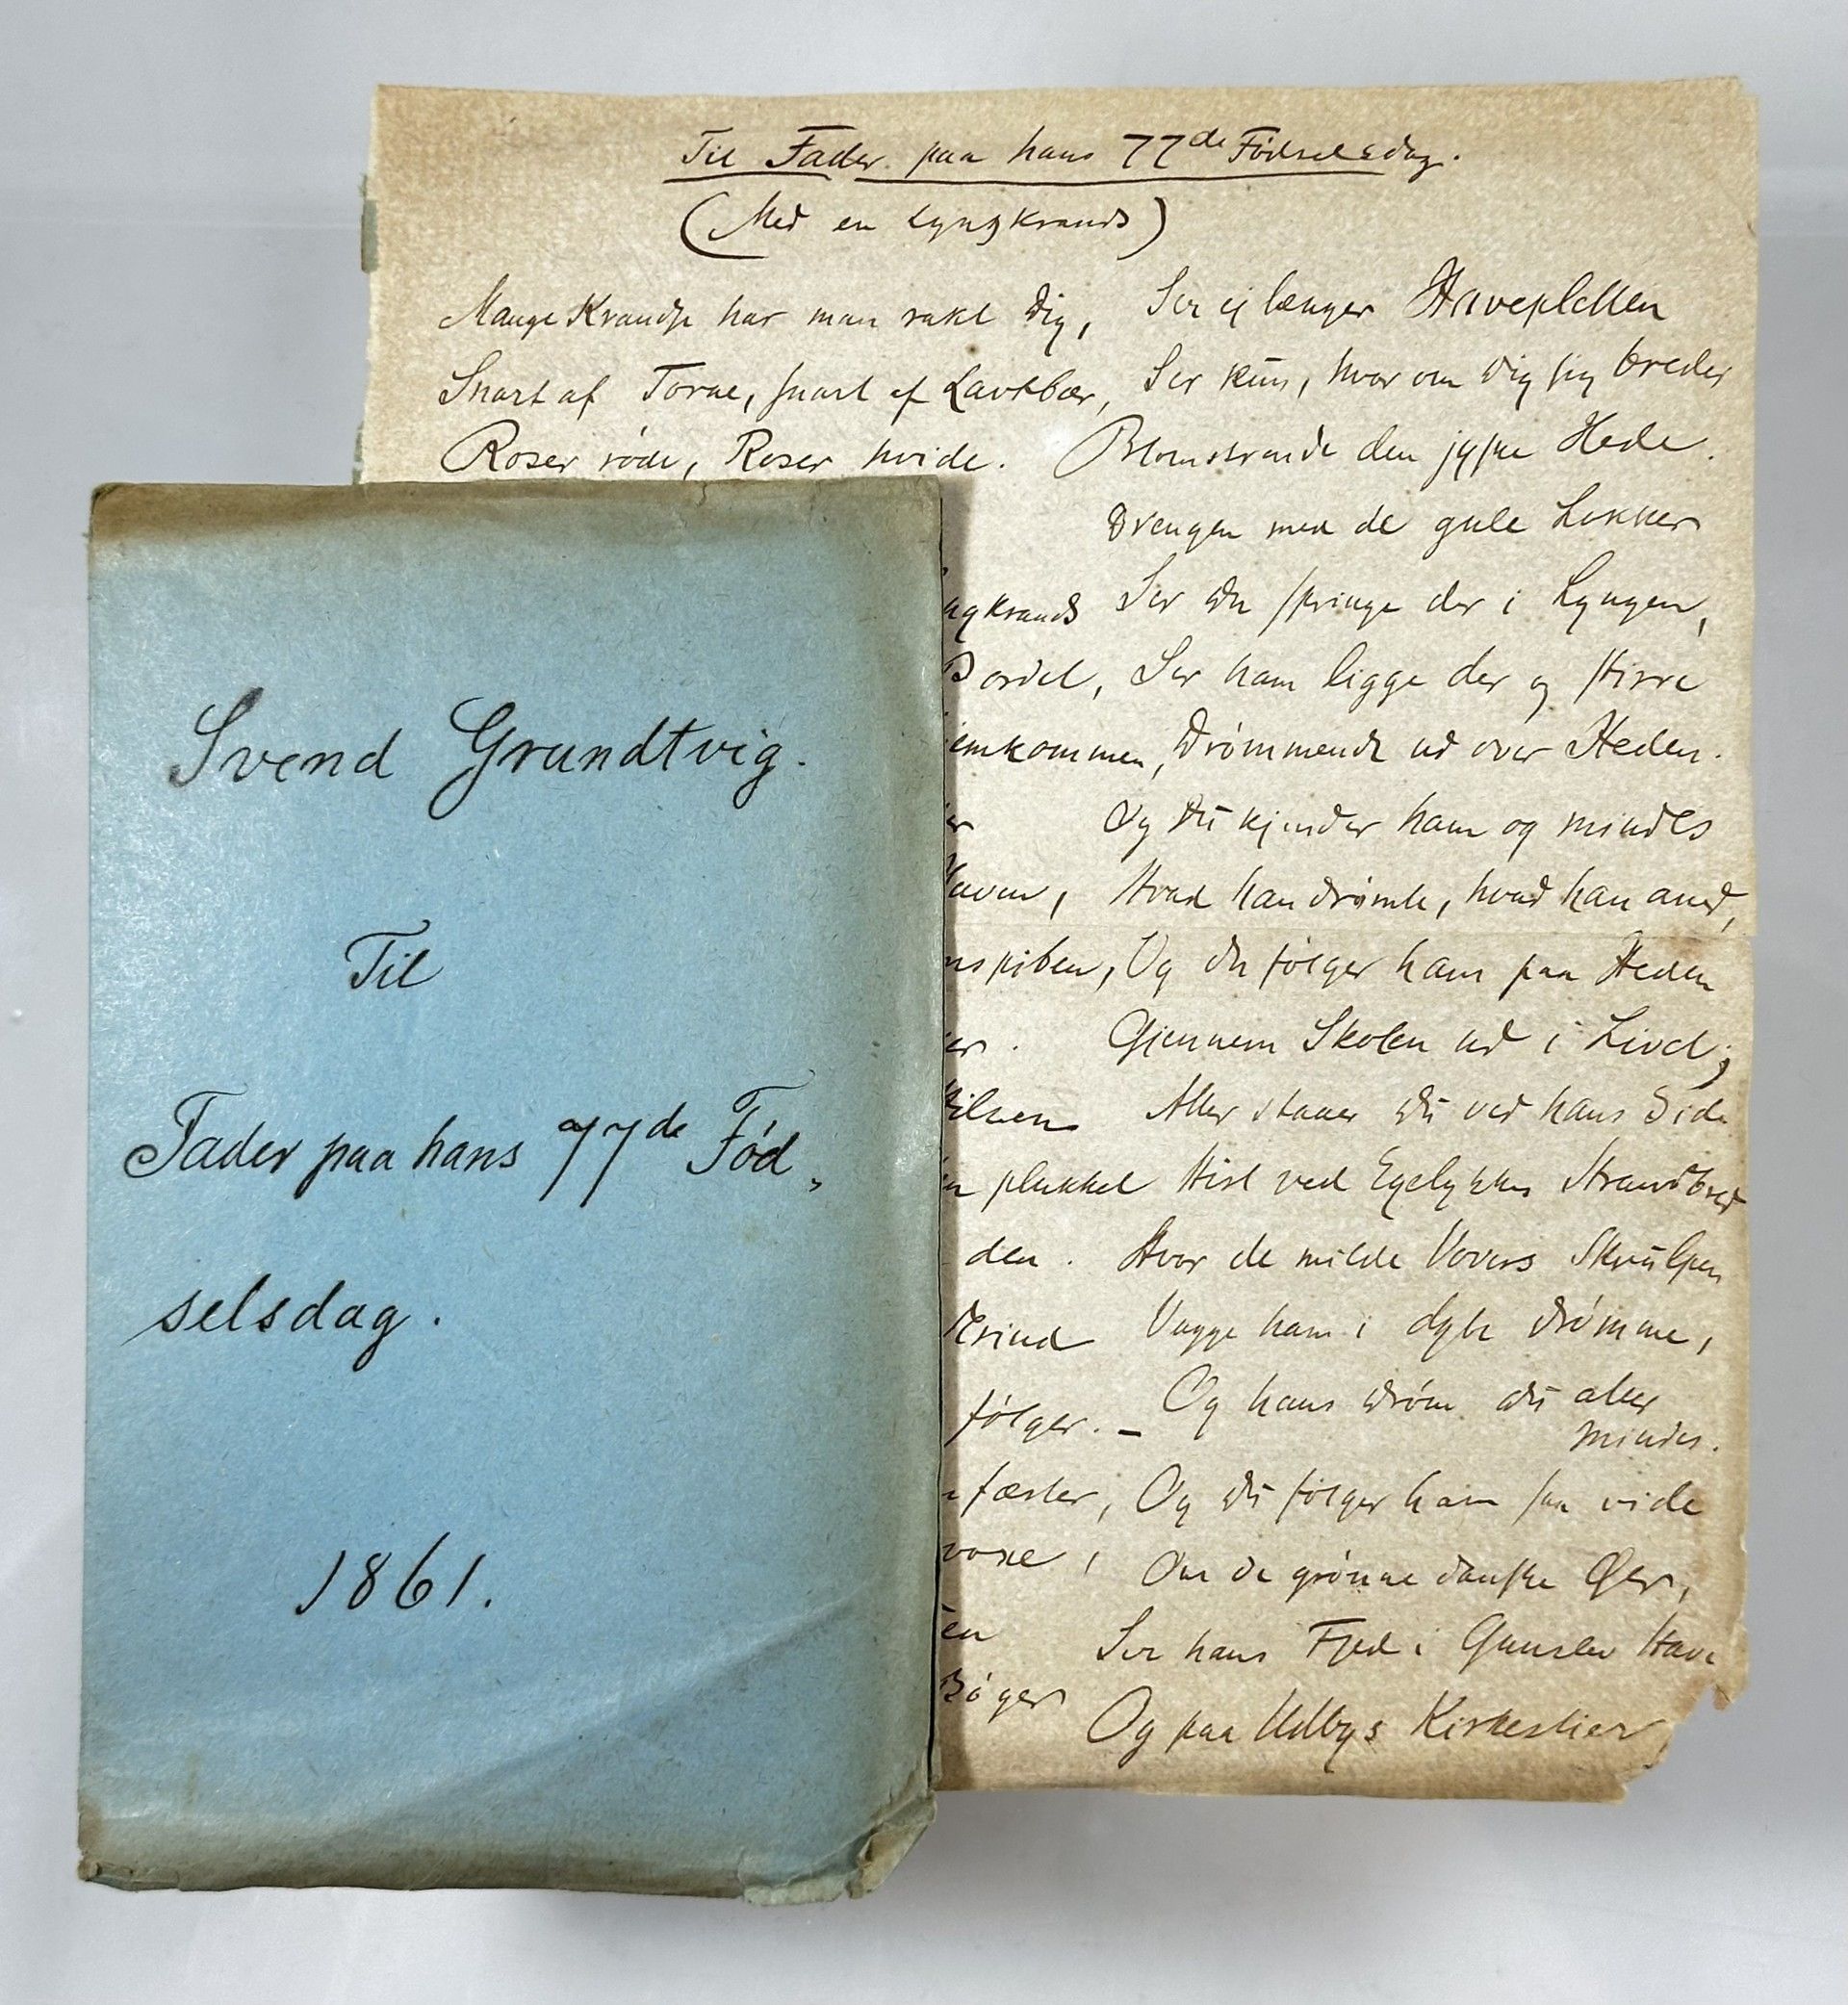 Svend Grundtvig.
Til
Fader paa hans 77de Fød„
selsdag.
1861.
Til Fader paa hans 77de Fødselsdag.
(Med en Lyngkrands)
Mange Krandse har man rakt Dig,
Snart af Torne, snart af Lavrbær,
Roser røde, Roser hvide.
ngkrands
Bordet,
emkommen,
er
Haven,
nspiben,
er.
ilsen
n plukket
den.
Krind
følger. –
fæster,
voxe,
en
Bøger
Ser ej længer Havepletten
Ser kun, hvor om Dig sig breder
Blomstrende den jyske Hede.
Drengen med de gule Lokker
Ser Du springe der i Lyngen,
Ser ham ligge der og stirre
Drømmende ud over Heden.
Og Du kjender ham og mindes
Hvad han drømte, hvad han aned,
Og Du følger ham paa Heden
Gjennem Skolen ud i Livet;
Atter staaer Du ved hans Side
Hist ved Egelykkes Strandbred
Hvor de milde Vovers Skvulpen
Vugge ham i dybe Drømme,
Og hans Drøm Du atter
mindes.
Og Du følger ham saa vide
Om de grønne danske Øer,
Ser hans Fjed i Gunslev Have
Og paa Udbys Kirkestier